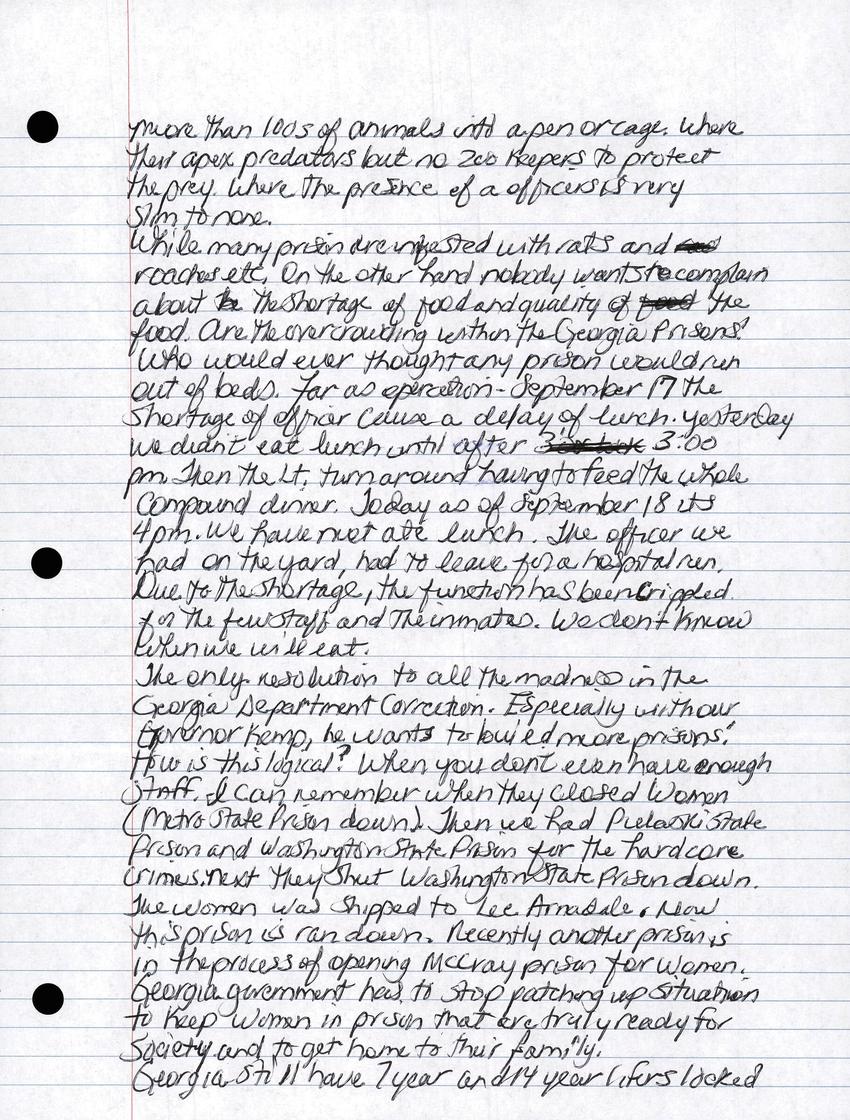 more than 100s of animals into a pen or cage. Where
their apex predators but no Zoo Keepers to protect
the prey. Where the presence of a officers is very
slim to none.
While many prison are infested with rats and
roaches etc. On the other hand nobody wants to complain
about the shortage of food and quality of the
food. Are the overcrowding within the Georgia Prisons!
Who would ever thought any prison would run
out of beds. Far as operation - September 17 the
Shortage of officer cause a delay of lunch. yesterday
we didn't eat lunch until after 3:00
pm. Then the Lt, turn around having to feed the whole
Compound dinner. Today as of September 18 its
4pm. We have not ate lunch. The officer we
had on the yard, had to leave for a hospital run.
Due to the shortage, the function has been crippled
for the few staff and the inmates. We don't know
when we will eat.
The only resolution to all the madness in the
Georgia Department Correction. Especially with our
Governor Kemp, he wants to build more prisons!
How is this logical? When you dont even have enough
Staff. I can remember when they closed Women
(Metro State Prison down). Then we had Pulaski State
Prison and Washington State Prison for the hardcore
crimes. next They shut Washington State Prison down.
The women was shipped to Lee Arrendale. Now
this prison is ran down. Recently another prison is
in the process of opening McCray prison for Women.
Georgia government has to stop patching up situation
to keep women in prison that are truly ready for
Society and to get home to their family.
Georgia still have 7 year and 14 year lifers locked